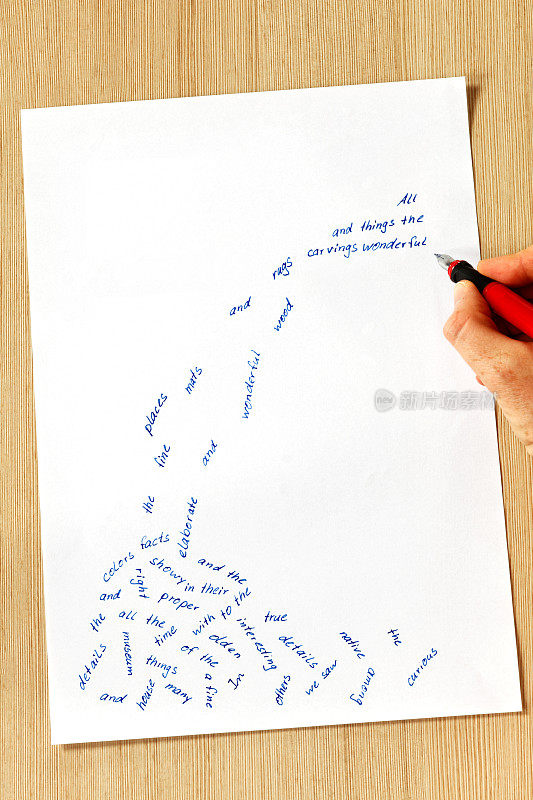 All
and things the
carvings wonderful
rugs
and
wood
mats
places
wonderful
fine
and
the
elaborate
facts
colors
showy
and the
right
in their
and
proper
with to the
the
all the
time
interesting
true
details
museum
things
of the
olden
details
native
the
and
house
many
a fine
In
others
we saw
among
curious
new
新图网